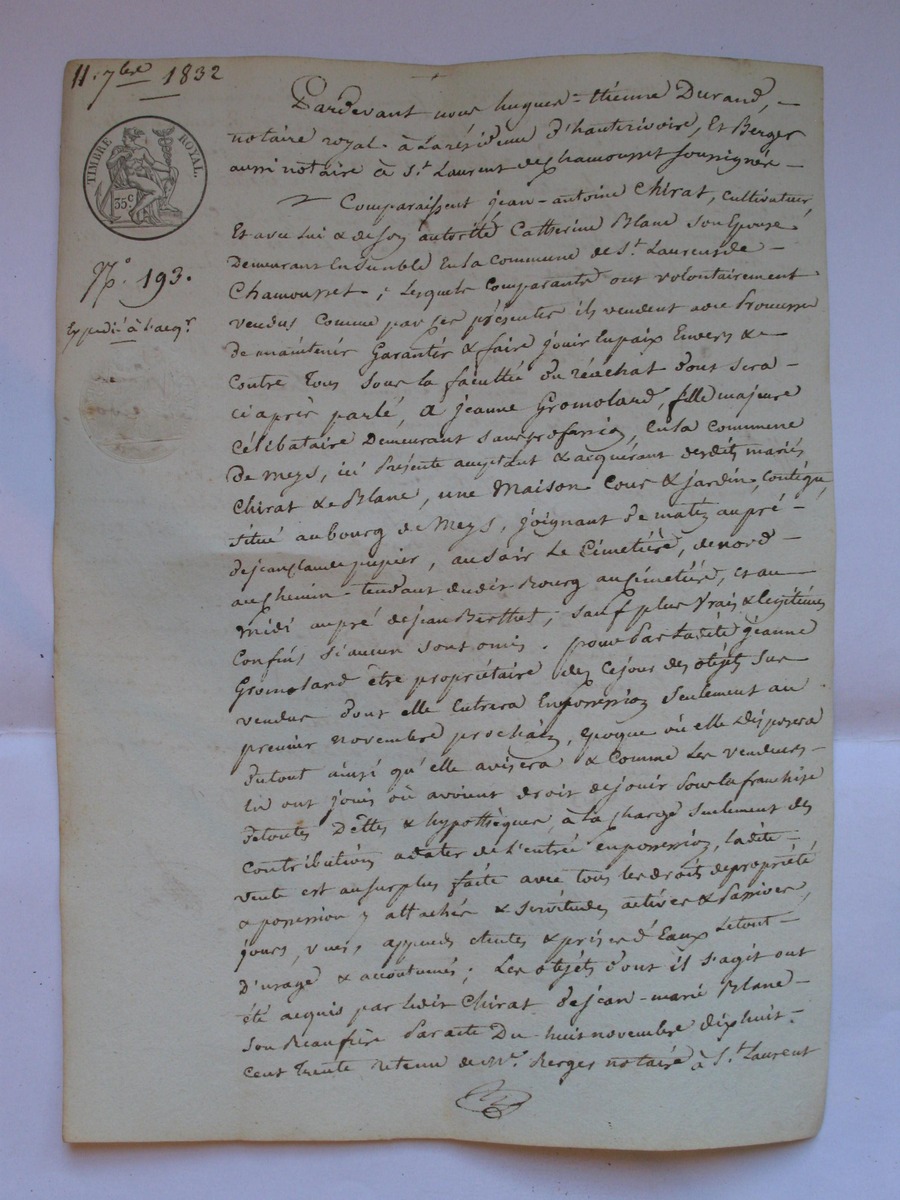 11. 7bre 1832
TIMBRE ROYAL.
35.c
N.o 193.
Expédié à l'acqr
Pardevant nous hugues-thienne Durand,
notaire royal à la résidence d'hauterivoire, Et Berger
aussi notaire à St. Laurent de Chamousset soussignés
Comparaissent jean-antoine Chirat, cultivateur,
Et avec lui & de son autorité Catherine Blanc son Epouse
Demeurant Ensemble En la commune de St. Laurent de
Chamousset; Lesquels Comparants ont volontairement
vendus Comme par ces présentes ils vendent avec Promesse
de maintenir Garantir & faire jouir En paix Envers &
Contre Tous sous la faculté du réachat dont sera
ci après parlé, à jeanne Gromolard, fille majeure
Célibataire Demeurant sans profession, En la Commune
De Meys, ici Présente acceptant & acquérant desdits mariés
Chirat & Blanc, une Maison Cour & jardin, Contigus
situé au bourg de Meys, joignant De matin au pré
de jean Claude pupier, au soir Le Cimetière, de nord
au Chemin tendant dudit Bourg au Cimetière, et au
midi au pré de jean Berthet; sauf plus vrais & légitimes
Confins si aucun sont omis. pour Par Ladite jeanne
Gromolard être propriétaire dès Ce jour des objets sus
vendus dont elle Entrera En possession seulement au
premier novembre prochain, époque où elle disposera
du tout ainsi qu'elle avisera & Comme Les vendeurs
En ont jouis où avoient droit de jouir sous la franchise
de toutes Dettes & hypothèques, à la charge seulement des
Contributions a dater de l'entrée en possession, ladite
vente est au surplus faite avec tous les droits de propriété
& possession y attachés & servitudes actives & Passives,
jours, vues, appends & prises d'Eaux Le tout
D'usage & accoutumés; Les objets dont il s'agit ont
été acquis par ledit Chirat de jean-marie Blanc
son Beaufrère Par acte Du huit novembre dix huit
Cent Trente retenu de Me. Berger notaire à St. Laurent